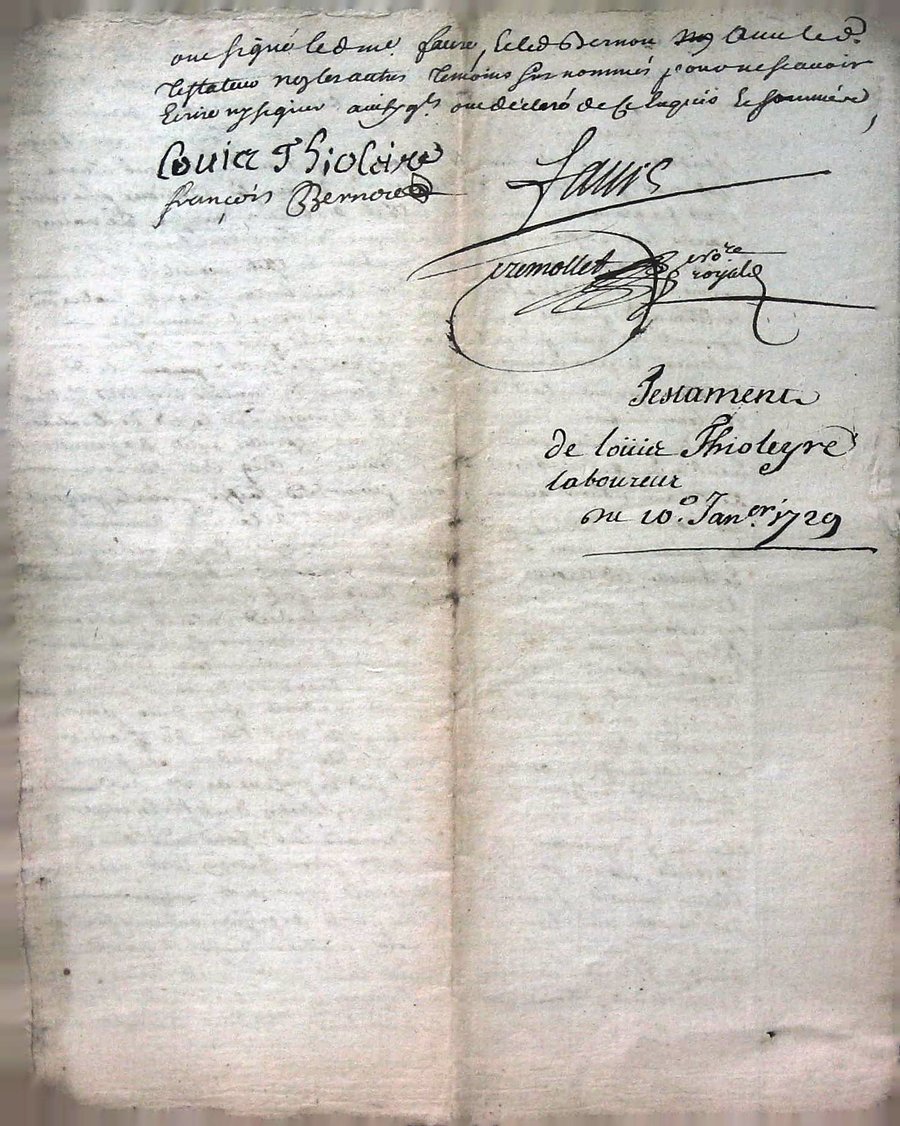 ont signé led me faure, et led Bernou avec led.
testateur ny les autres temoins sus nommés pour ne scavoir
Ecrire ny signer ainsy qls ont déclaré de ce Enquis et sommés,
Louier Thiolaire
françois Bernou
Faure
Tremollet nore
royal
Testament
de loüier Thioleyre
laboureur
Du 10e. Janer. 1729